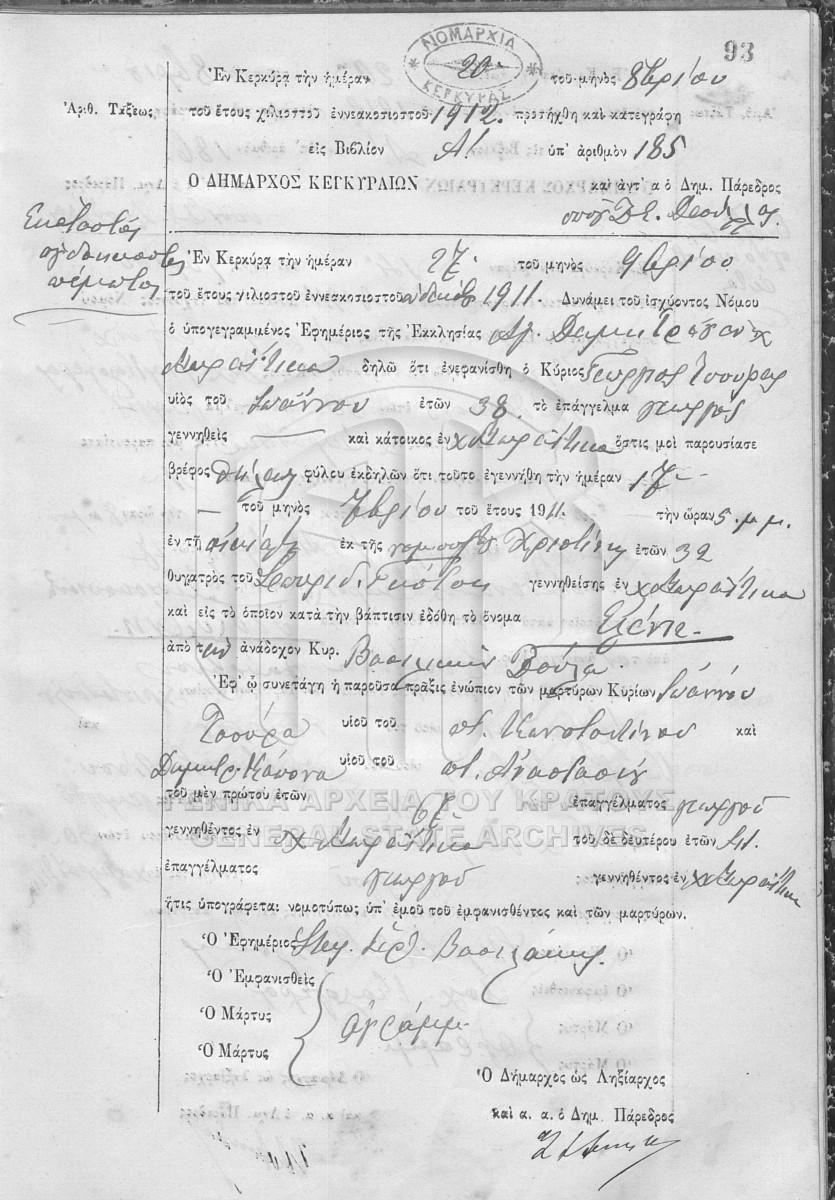 93
ΝΟΜΑΡΧΙΑ ΚΕΡΚΥΡΑΣ
Ἐν Κερκύρᾳ τὴν ἡμέραν 20 τοῦ μηνὸς 8βρίου
Ἀριθ. Τάξεως
τοῦ ἔτους χιλιοστοῦ ἐννεακοσιοστοῦ 1912. προσήχθη καὶ κατεγράφη
εἰς Βιβλίον Α/ ὑπ' ἀριθμὸν 185
Ο ΔΗΜΑΡΧΟΣ ΚΕΡΚΥΡΑΙΩΝ καὶ ἀντ' α ὁ Δημ. Πάρεδρος
Ἑκατοστὸς
ὀγδοηκοστὸς
πέμπτος
Ἐν Κερκύρᾳ τὴν ἡμέραν 27. τοῦ μηνὸς 9βρίου
τοῦ ἔτους χιλιοστοῦ ἐννεακοσιοστοῦ 1911. Δυνάμει τοῦ ἰσχύοντος Νόμου
ὁ ὑπογεγραμμένος Ἐφημέριος τῆς Ἐκκλησίας Ἁγ. Δημητρίου χ
Μωραΐτικα δηλῶ ὅτι ἐνεφανίσθη ὁ Κύριος Γεώργιος Τσούρας
υἱὸς τοῦ Ἰωάννου ἐτῶν 38. τὸ ἐπάγγελμα γεωργὸς
γεννηθεὶς — καὶ κάτοικος ἐν χ Μωραΐτικα ὅστις μοὶ παρουσίασε
βρέφος θήλεος φύλου ἐκδηλῶν ὅτι τοῦτο ἐγεννήθη τὴν ἡμέραν 17 —
— τοῦ μηνὸς 7βρίου τοῦ ἔτους 1911. τὴν ὥραν 5. μ.μ.
ἐν τῇ οἰκίᾳ ἐκ τῆς νομίμου Χριστίνης ἐτῶν 32
θυγατρὸς τοῦ Σπυρίδ. γεννηθείσης ἐν χ Μωραΐτικα
καὶ εἰς τὸ ὁποῖον κατὰ τὴν βάπτισιν ἐδόθη τὸ ὄνομα
ἀπὸ τὴν ἀνάδοχον Κυρ. Βασιλικὴν Δούζα
Ἐφ' ᾧ συνετάγη ἡ παροῦσα πρᾶξις ἐνώπιον τῶν μαρτύρων Κυρίων Ἰωάννου
Τσούρα υἱοῦ τοῦ π. Κωνσταντίνου καὶ
Δημητρ. Κάνονα υἱοῦ τοῦ π. Ἀναστασίου
τοῦ μὲν πρώτου ἐτῶν 67 ἐπαγγέλματος γεωργοῦ
ΓΕΝΙΚΑ ΑΡΧΕΙΑ ΤΟΥ ΚΡΑΤΟΥΣ
GENERAL STATE ARCHIVES
γεννηθέντος ἐν χ Μωραΐτικα τοῦ δὲ δευτέρου ἐτῶν
ἐπαγγέλματος γεωργοῦ γεννηθέντος ἐν χ Μωραΐτικα
ἥτις ὑπογράφεται νομοτύπως ὑπ' ἐμοῦ τοῦ ἐμφανισθέντος καὶ τῶν μαρτύρων.
Ὁ Ἐφημέριος Βασιλάκης
Ὁ Ἐμφανισθεὶς
Ὁ Μάρτυς ἀγράμμ.
Ὁ Μάρτυς
Ὁ Δήμαρχος ὡς Ληξίαρχος
καὶ α. α. ὁ Δημ. Πάρεδρος